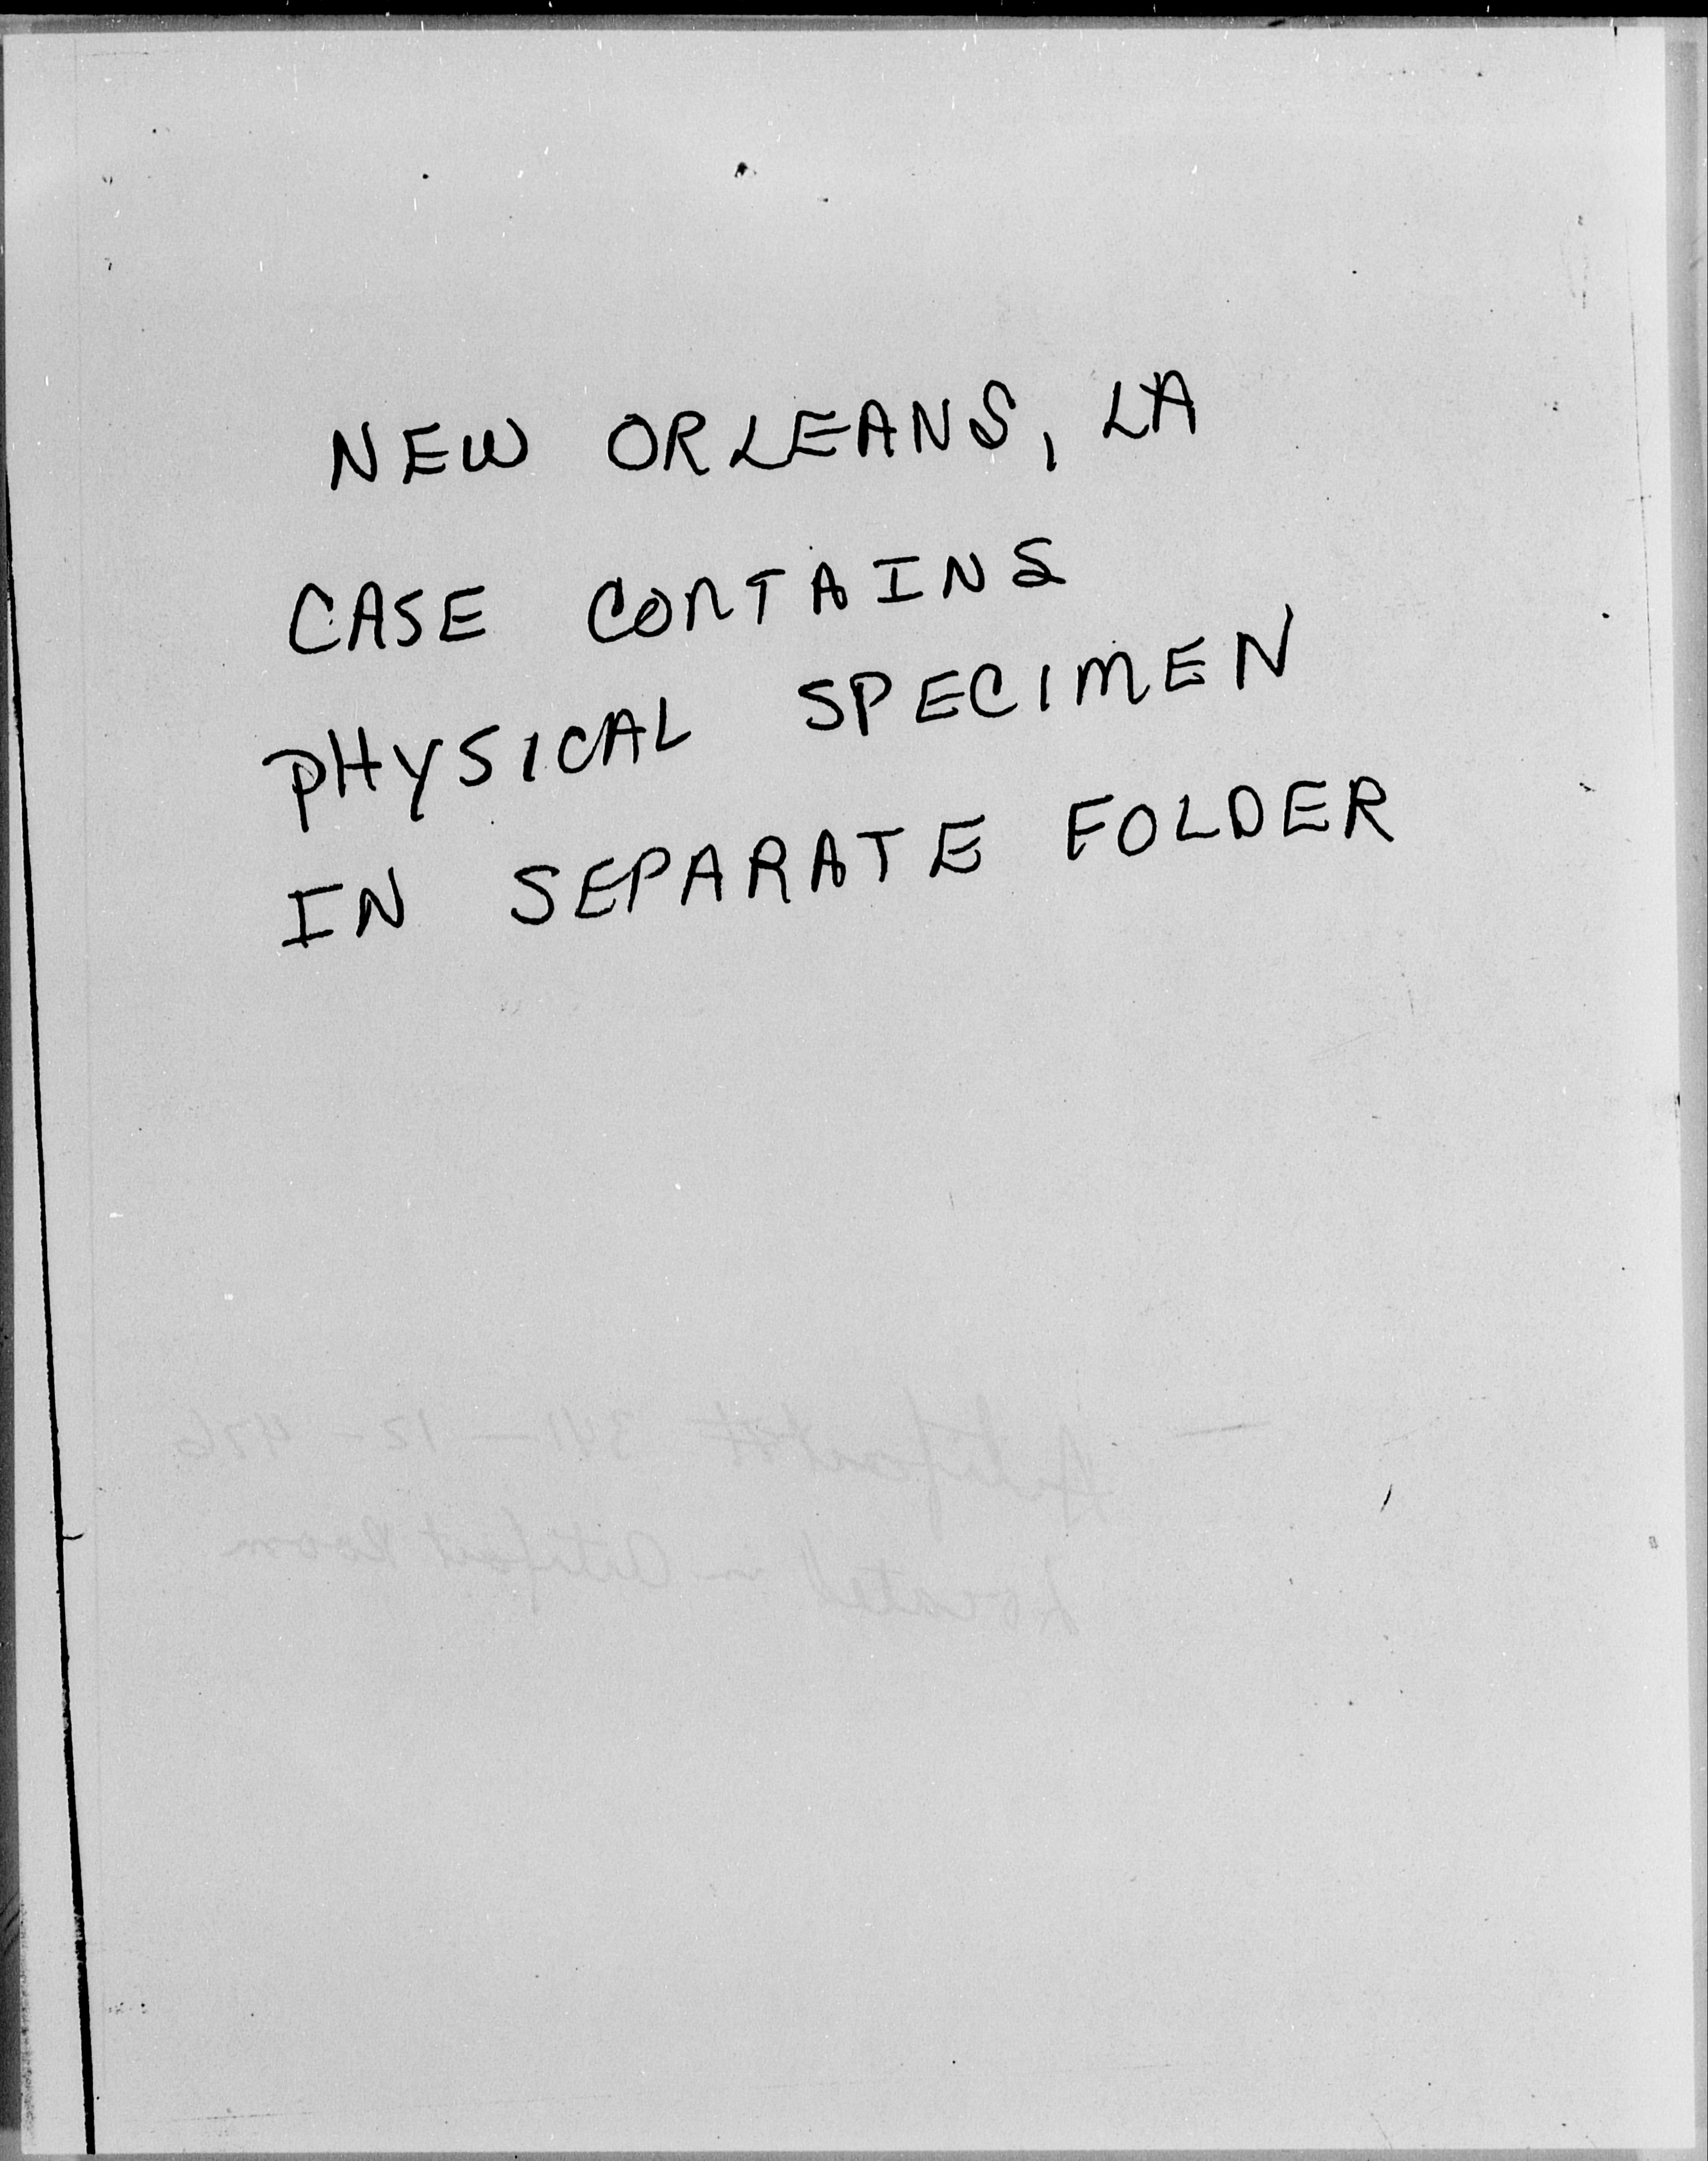 NEW ORLEANS, LA
CASE CONTAINS
PHYSICAL SPECIMEN
IN SEPARATE FOLDER
Artifact # 341-12-426
Located in Artifact Room